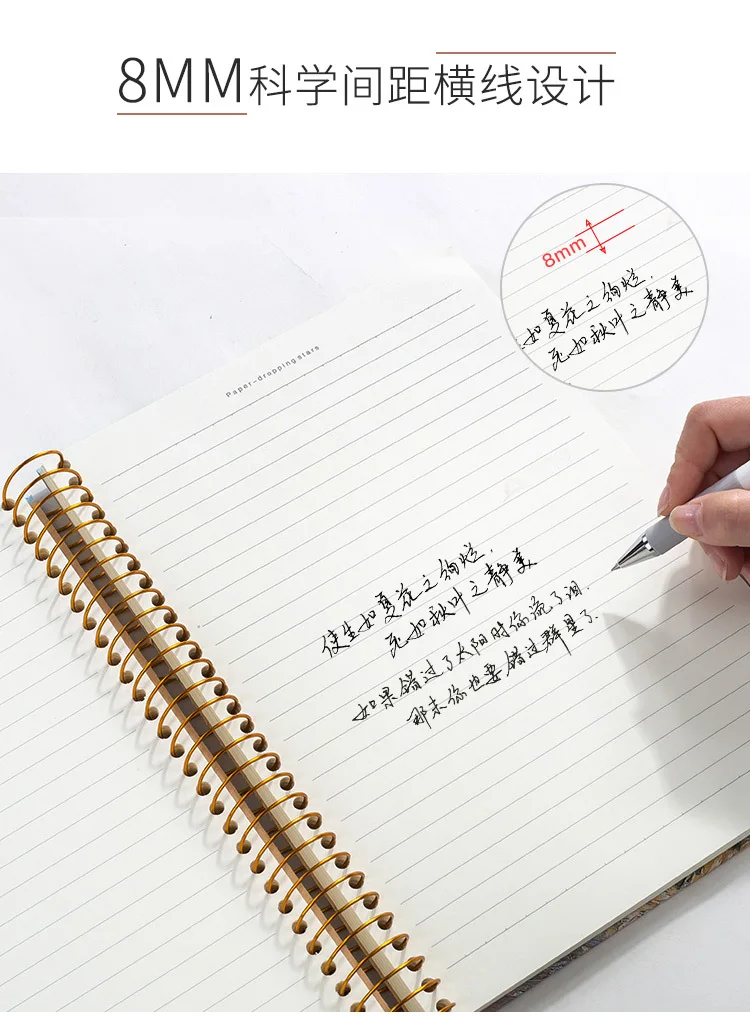 8MM科学间距横线设计
8mm
如夏花之绚烂,
死如秋叶之静美
Paper-dropping stars
使生如夏花之绚烂,
死如秋叶之静美
如果错过了太阳时你流了泪,
那末你也要错过群星了.